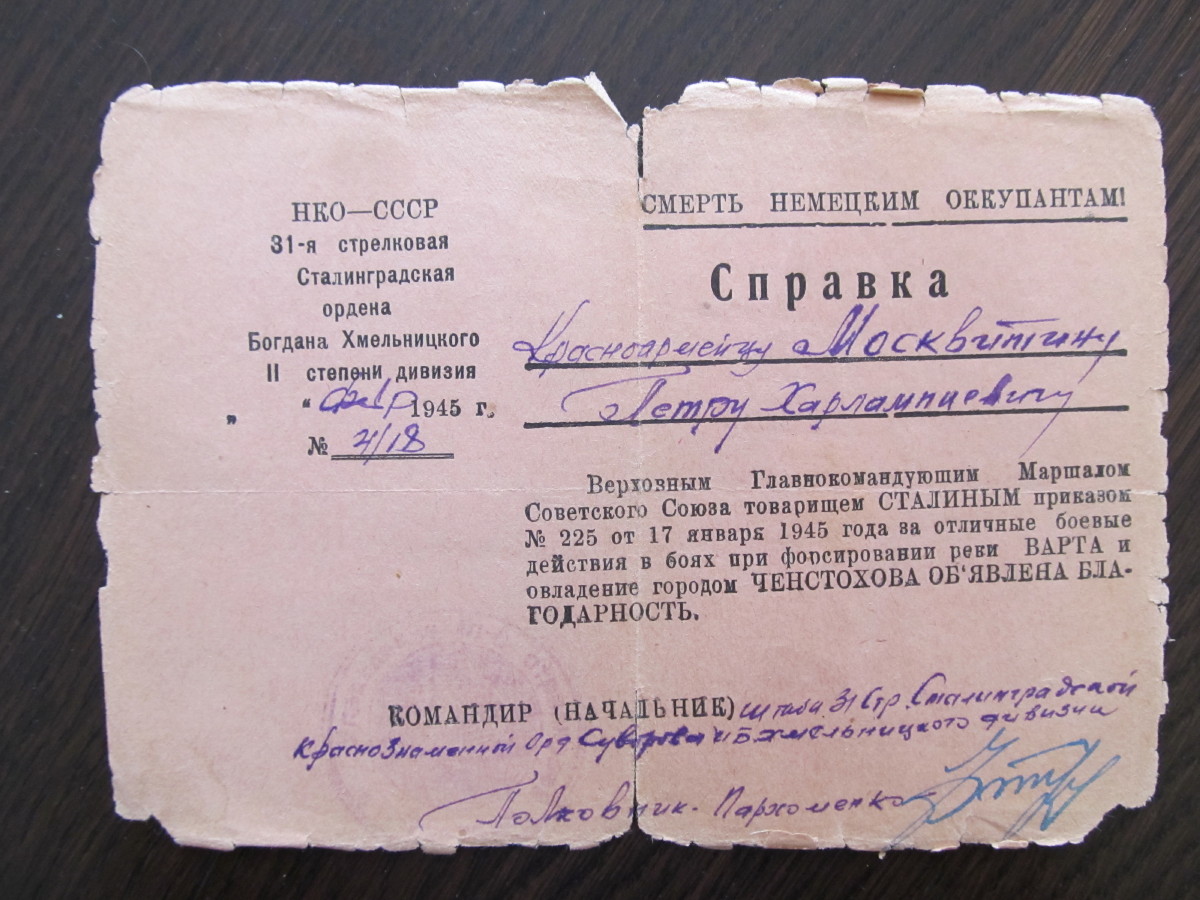 НКО—СССР
31-я стрелковая
Сталинградская
ордена
Богдана Хмельницкого
II степени дивизия
„ “ 1945 г.
№ 4/18
СМЕРТЬ НЕМЕЦКИМ ОККУПАНТАМ!
Справка
Красноармейцу Москвитину
Петру Харлампиевичу
Верховным Главнокомандующим Маршалом
Советского Союза товарищем СТАЛИНЫМ приказом
№ 225 от 17 января 1945 года за отличные боевые
действия в боях при форсировании реки ВАРТА и
овладение городом ЧЕНСТОХОВА ОБ'ЯВЛЕНА БЛА-
ГОДАРНОСТЬ.
КОМАНДИР (НАЧАЛЬНИК) штаба 31 Стр. Сталинградской
Краснознаменной Орд. Суворова и Б. Хмельницкого дивизии
Полковник - Пархоменко